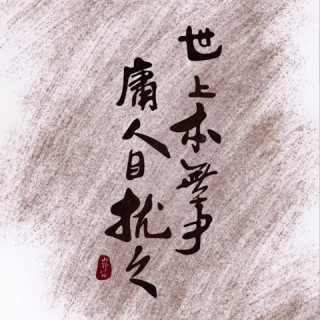 世上本無事
庸人自扰之